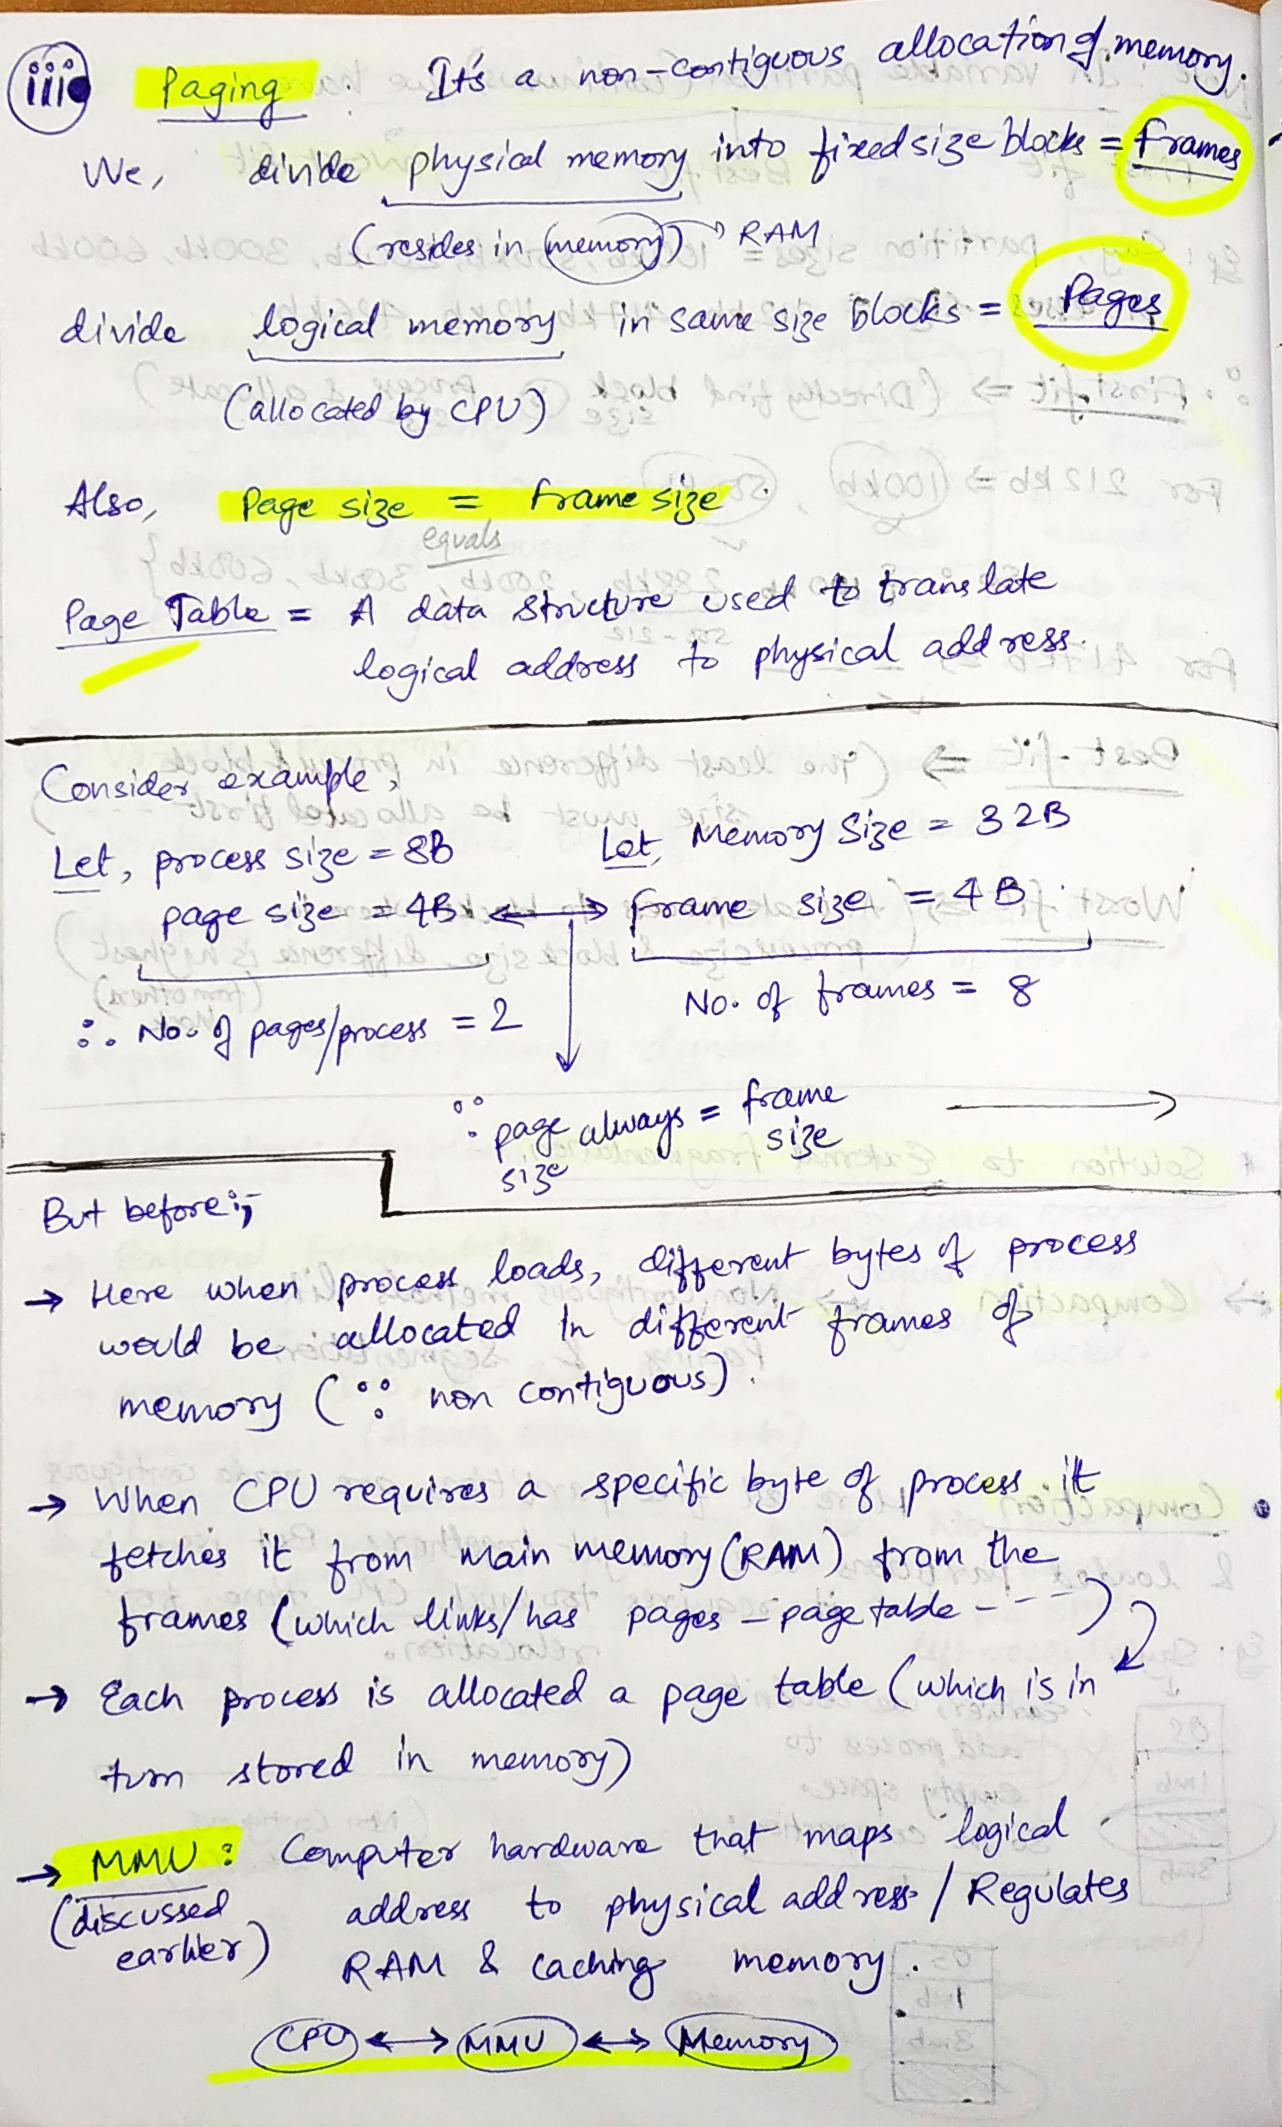 iii Paging It's a non-contiguous allocation of memory.
We, divide physical memory into fixed size blocks = frames
(resides in memory) → RAM
divide logical memory in same size blocks = Pages
(allocated by CPU)
Also, Page size = frame size.
equals
Page Table = A data structure used to translate
logical address to physical address.
Consider example,
Let, process size = 8B Let, Memory Size = 32B
page size = 4B ↔ frame size = 4B
∴ No. of pages/process = 2 No. of frames = 8
∵ page size always = frame size →
But before;-
→ Here when process loads, different bytes of process
would be allocated in different frames of
memory (∵ non contiguous).
→ When CPU requires a specific byte of process it
fetches it from main memory (RAM) from the
frames (which links/has pages - page table ---)
→ Each process is allocated a page table (which is in
turn stored in memory)
→ MMU: Computer hardware that maps logical
(discussed earlier) address to physical address / Regulates
RAM & caching memory.
CPU ↔ MMU ↔ Memory